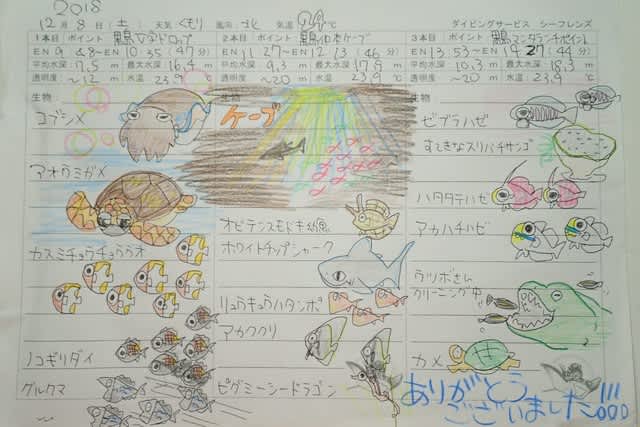 2018
12月8日(土) 天気:くもり 風向:北 気温24℃ ダイビングサービス シーフレンズ
1本目 ポイント 黒島V字ドロップ
EN 9:48~ EN 10:35 (47分)
平均水深 7.5 m 最大水深 16.4 m
透明度 ~12 m 水温 23.9 ℃
生物
コブシメ
アオウミガメ
カスミチョウチョウウオ
ノコギリダイ
グルクマ
2本目 ポイント
EN 11:27~EN 12:13 (46分)
平均水深 9.3 m 最大水深 17.8 m
透明度 ~20 m 水温 23.9 ℃
生物
ケーブ
オビテンスモドキ幼魚
ホワイトチップシャーク
リュウキュウハタンポ
アカククリ
ピグミーシードラゴン
3本目 ポイント
EN 13:53~EN 14:27 (44分)
平均水深 10.3 m 最大水深 18.3 m
透明度 ~20 m 水温 23.9 ℃
生物
ゼブラハゼ
すてきなスリバチサンゴ
ハタタテハゼ
アカハチハゼ
ウツボさん
クリーニング中
カメ
ありがとう
ございました!!!